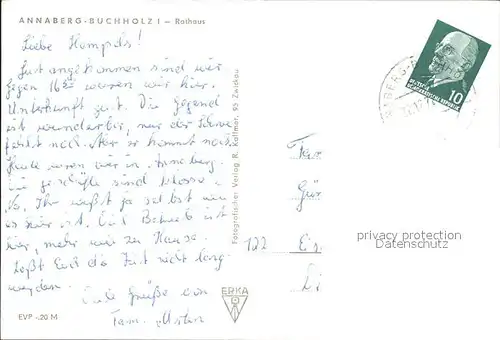 ANNABERG-BUCHHOLZ I — Rathaus
Liebe Hompels!
Gut angekommen sind wir
gegen 16 waren wir hier.
Unterkunft gut. Die Gegend
ist wunderbar, nur der Schnee
fehlt noch. Aber er kommt noch
Heute waren wir in Annaberg.
Die Geschäfte sind klasse
Ihr wißt ja selbst wie
es hier ist. Viel Betrieb ist
hier, mehr wie zu Hause.
Laßt Euch die Zeit nicht lang
werden.
Viele Grüße von
Fam.
EVP -.20 M
Fotografischer Verlag R. Kallmer, 95 Zwickau
ERKA
10
122
privacy protection
Datenschutz